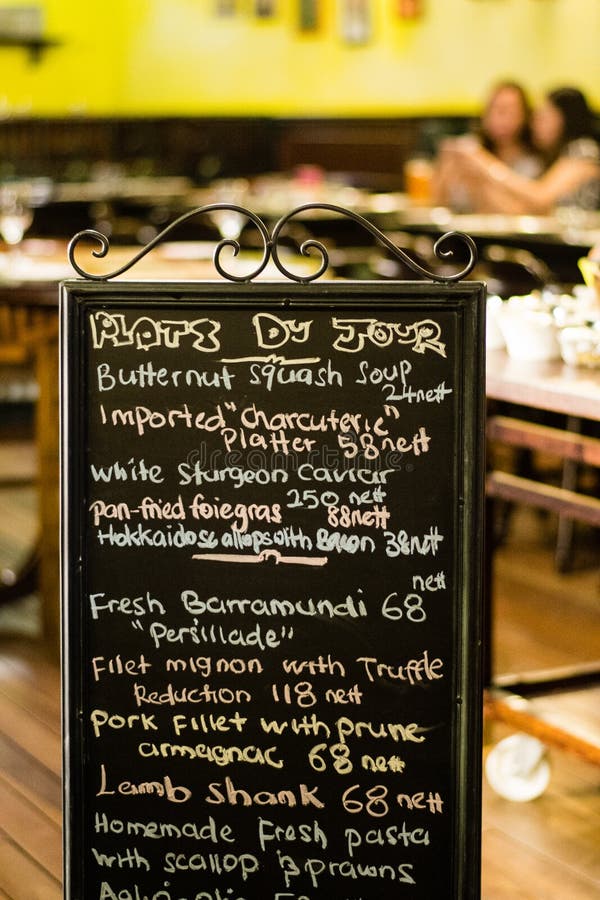 PLATS DU JOUR
Butternut squash soup
24nett
Imported "Charcuterie"
Platter 58nett
White Sturgeon Caviar
250 nett
pan-fried foiegras 88nett
Hokkaido scallops with Bacon 38nett
nett
Fresh Barramundi 68
"Persillade"
Filet mignon with Truffle
Reduction 118 nett
Pork Fillet with prune
armagnac 68 nett
Lamb shank 68 nett
Homemade Fresh pasta
with scallop & prawns